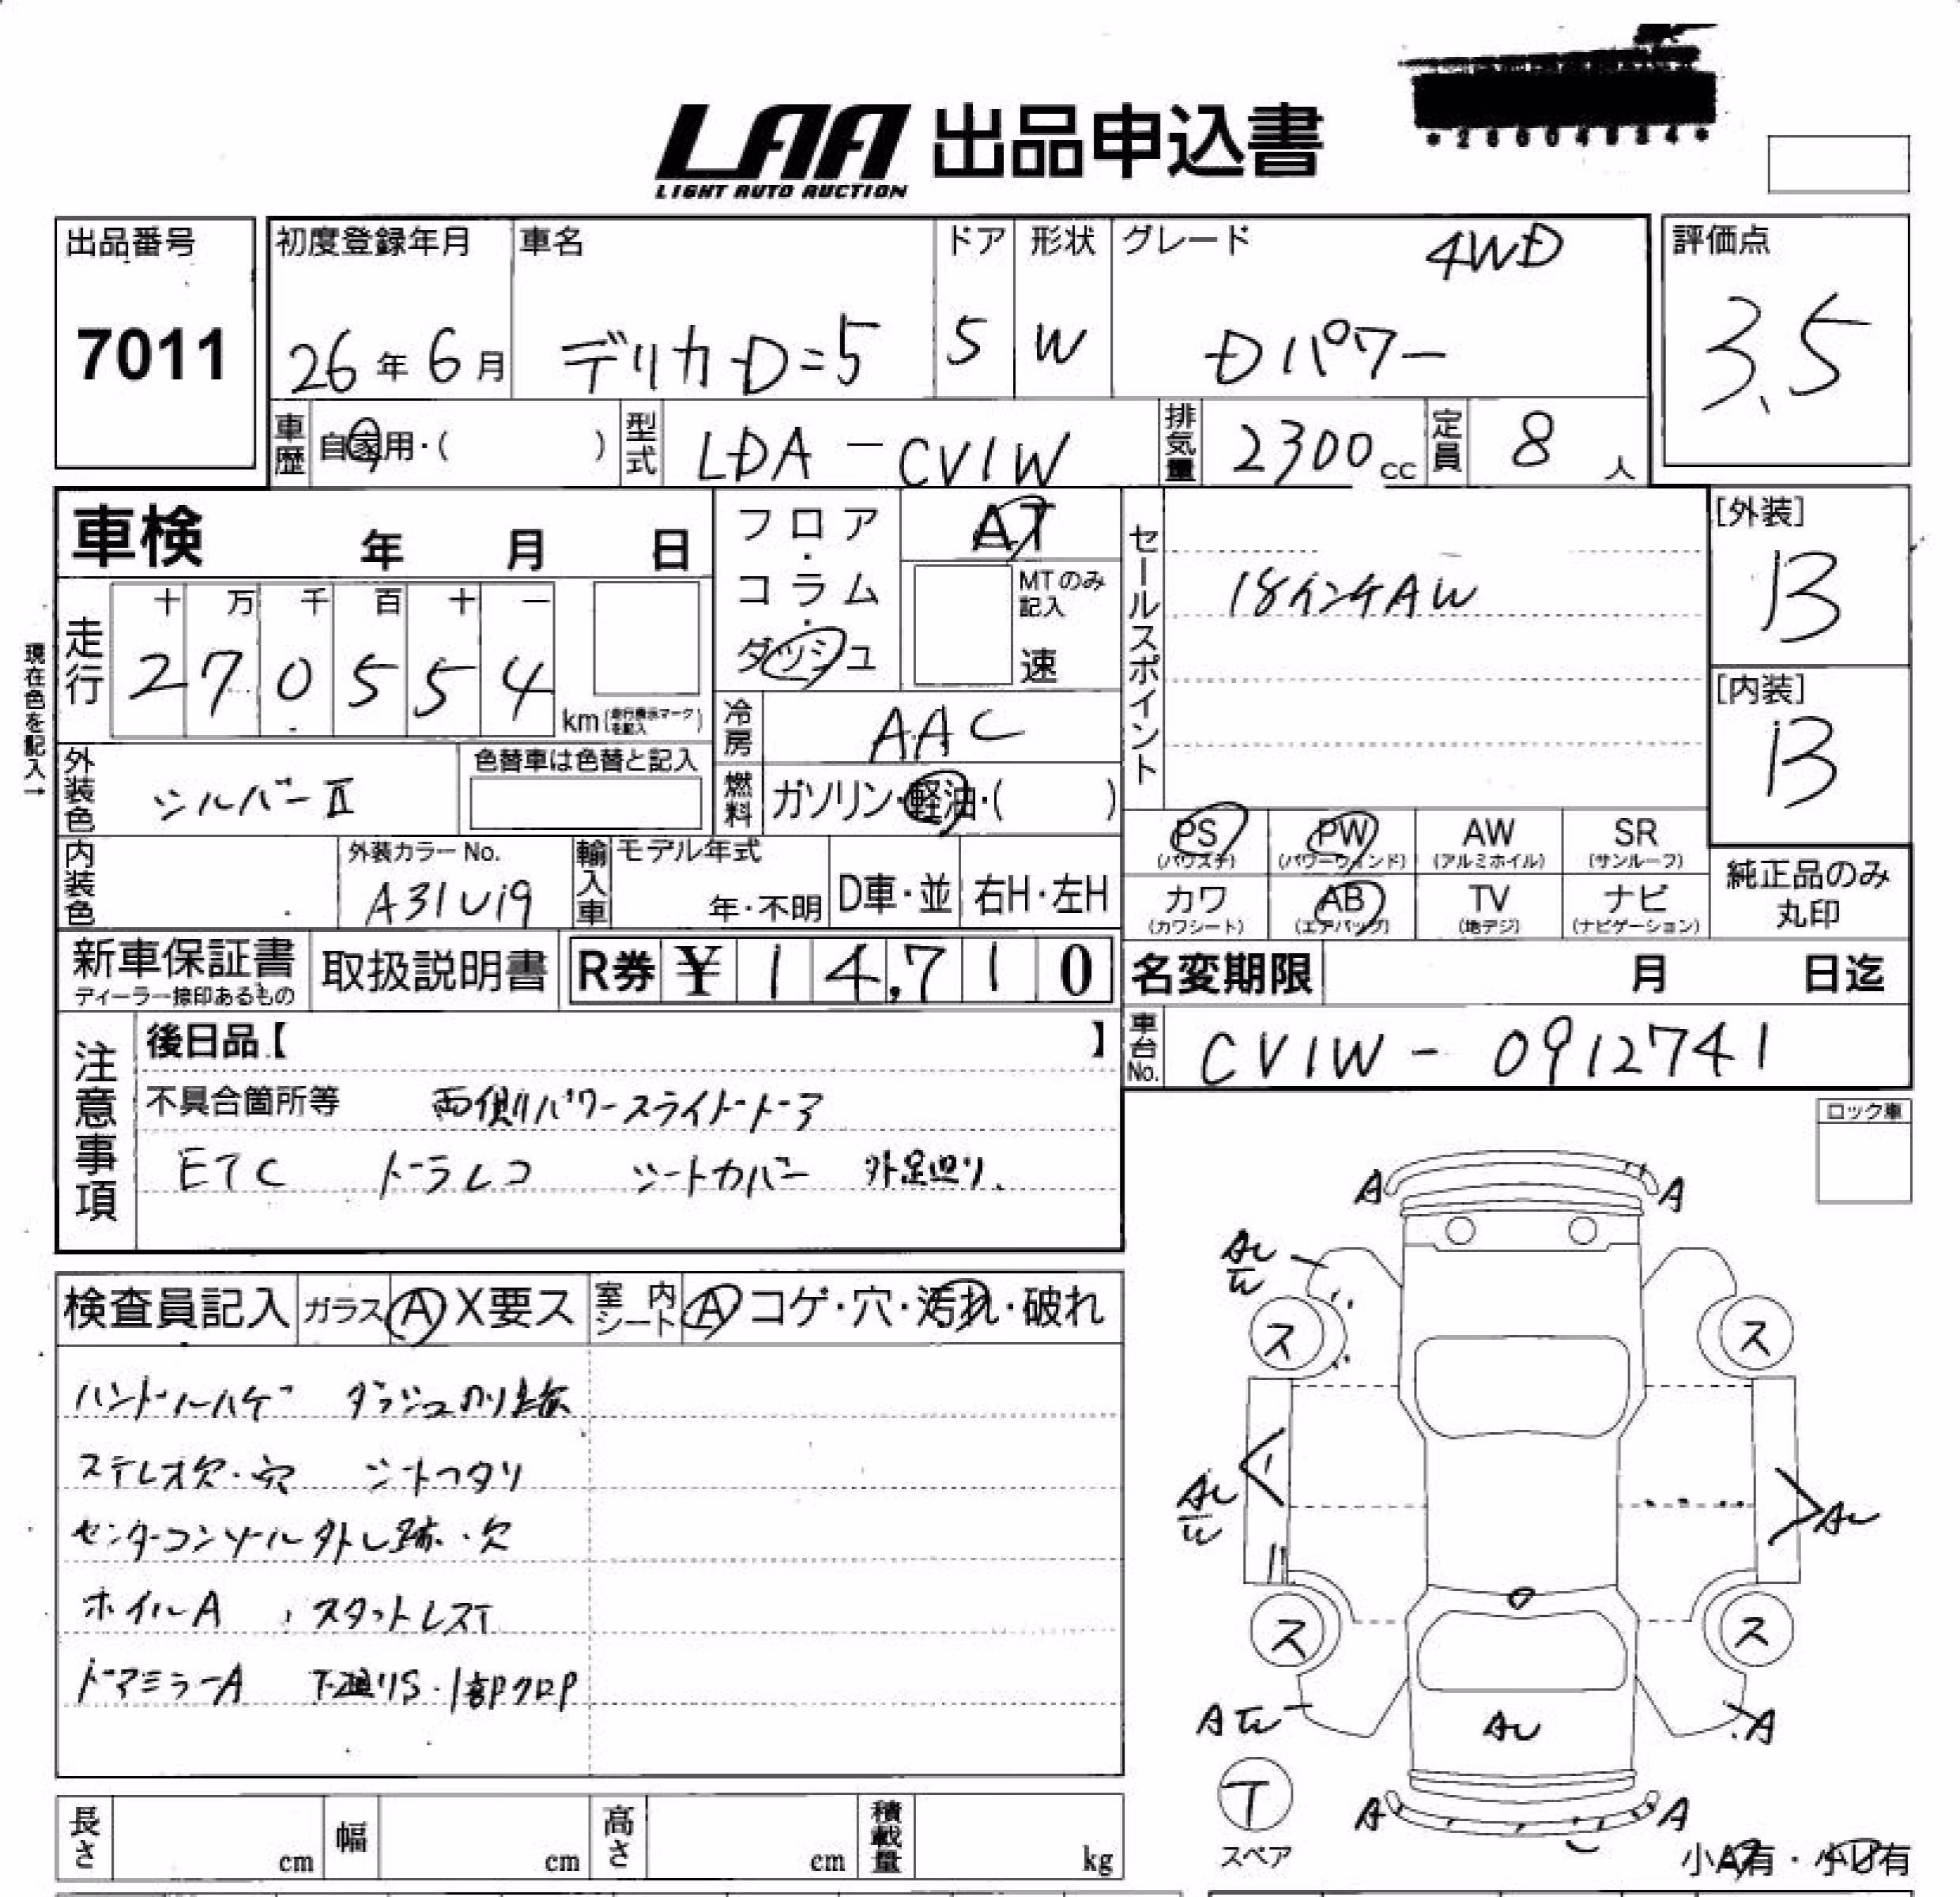 LAA 出品申込書
LIGHT AUTO AUCTION
出品番号
7011
初度登録年月
26年6月
車名
デリカD=5
ドア
5
形状
W
グレード
4WD
Dパワー
評価点
3.5
車歴
自家用・( )
型式
LDA-CV1W
排気量
2300cc
定員
8人
車検 年 月 日
フロア・コラム・ダッシュ
AT
MTのみ記入
速
セールスポイント
18インチAW
[外装]
B
[内装]
B
現在色を記入→
走行
十 万 千 百 十 一
2 7 0 5 5 4
km(走行表示マークを記入)
冷房
AAC
燃料
ガソリン・軽油・( )
外装色
シルバーⅡ
色替車は色替と記入
内装色
外装カラーNo.
A31U19
輸入車
モデル年式
年・不明
D車・並
右H・左H
PS (パワステ)
PW (パワーウィンド)
AW (アルミホイル)
SR (サンルーフ)
カワ (カワシート)
AB (エアバッグ)
TV (地デジ)
ナビ (ナビゲーション)
純正品のみ
丸印
新車保証書
ディーラー捺印あるもの
取扱説明書
R券 ¥14,710
名変期限 月 日迄
車台No.
CV1W-0912741
注意事項
後日品【 】
不具合箇所等 両側パワースライドドア
ETC ドラレコ シートカバー 外足廻り.
ロック車
検査員記入 ガラス A X要ス 室内シート A コゲ・穴・汚れ・破れ
ハンドルハゲ ダッシュのり跡
ステレオ欠・穴 シートヘタリ
センターコンソール外し跡・欠
ホイルA スタットレスT
ドアミラーA 下廻りS・1部P クロP
A
A
AU
ス
ス
AU
AU
ス
ス
A
AU
A
T
スペア
A
A
小A有・小U有
長さ cm
幅 cm
高さ cm
積載量 kg